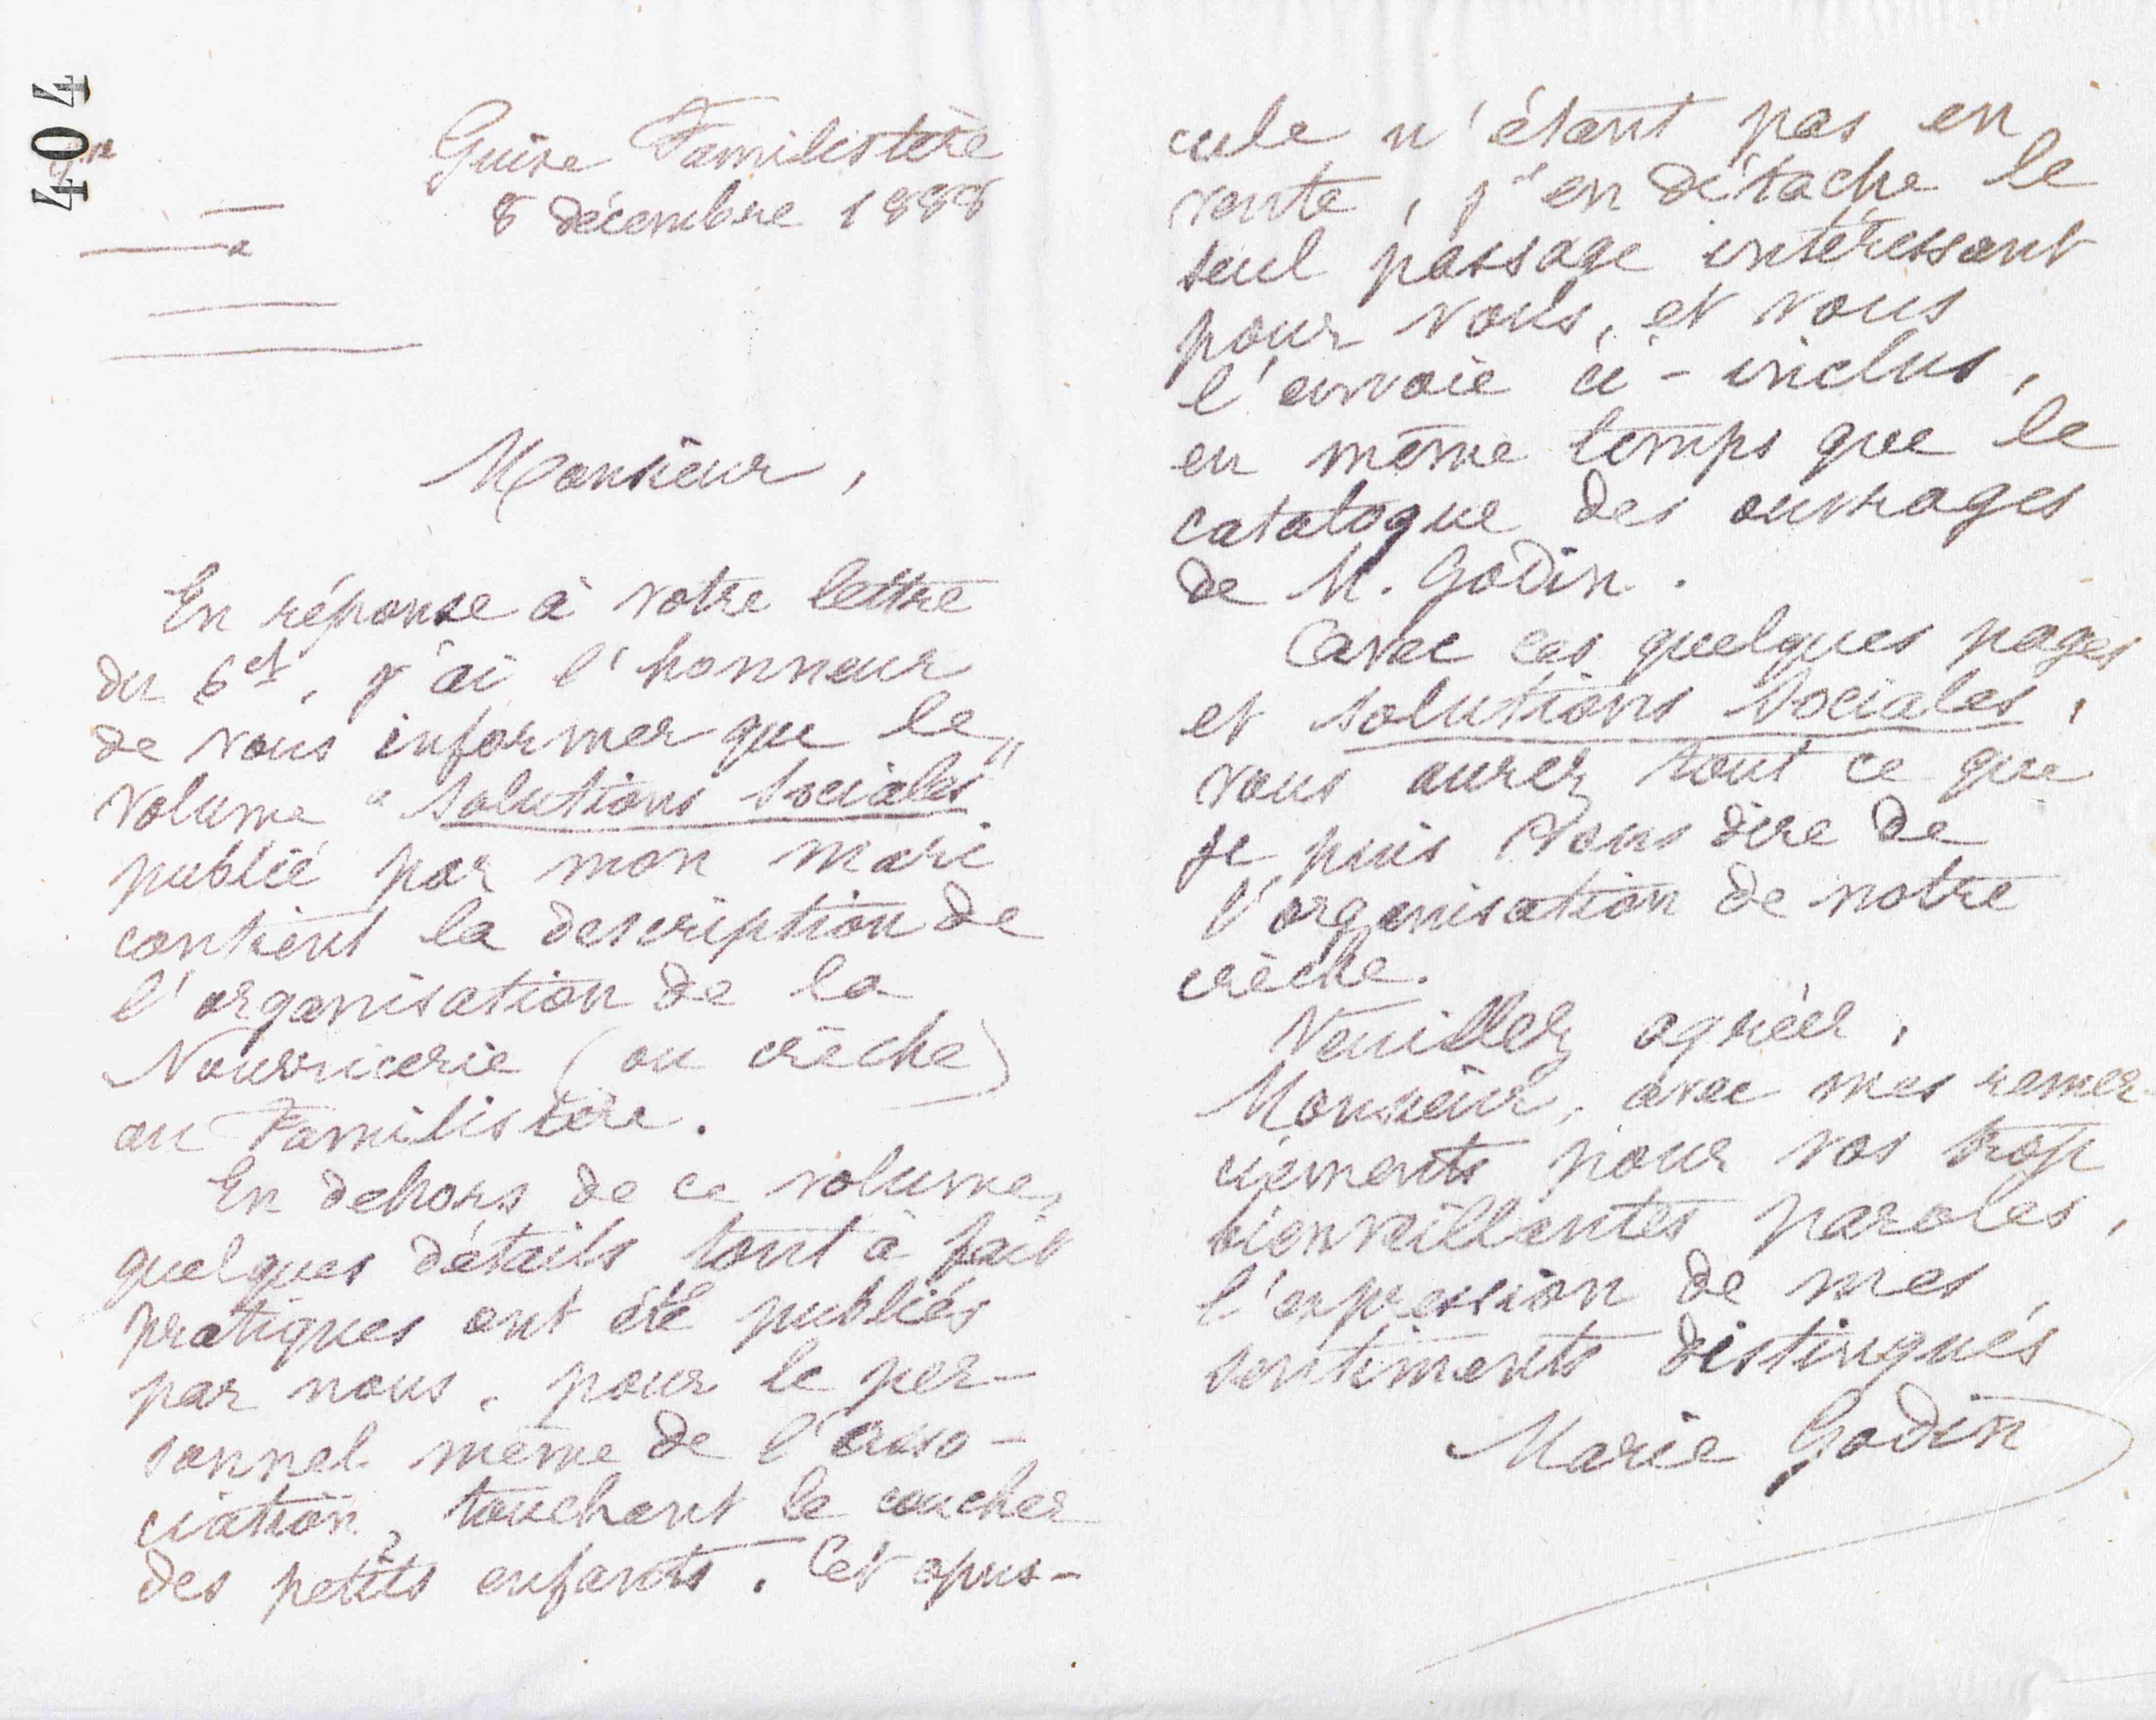 404
Guise Familistère
8 décembre 1888
Monsieur,
En réponse à votre lettre
du 6ct, j'ai l'honneur
de vous informer que le
volume "Solutions Sociales"
publié par mon mari
contient la description de
l'organisation de la
Nourricerie (ou crèche)
au Familistère.
En dehors de ce volume,
quelques détails tout à fait
pratiques ont été publiés
par nous, pour le per-
sonnel même de l'asso-
ciation, touchant le coucher
des petits enfants. Cet opus-
cule n'étant pas en
vente, j'en détache le
seul passage intéressant
pour vous, et vous
l'envoie ci-inclus,
en même temps que le
catalogue des ouvrages
de M. Godin.
Avec ces quelques pages
et Solutions Sociales,
vous aurez tout ce que
je puis vous dire de
l'organisation de notre
crèche.
Veuillez agréer,
Monsieur, avec mes remer
ciements pour vos trop
bienveillantes paroles,
l'expression de mes
sentiments distingués
Marie Godin